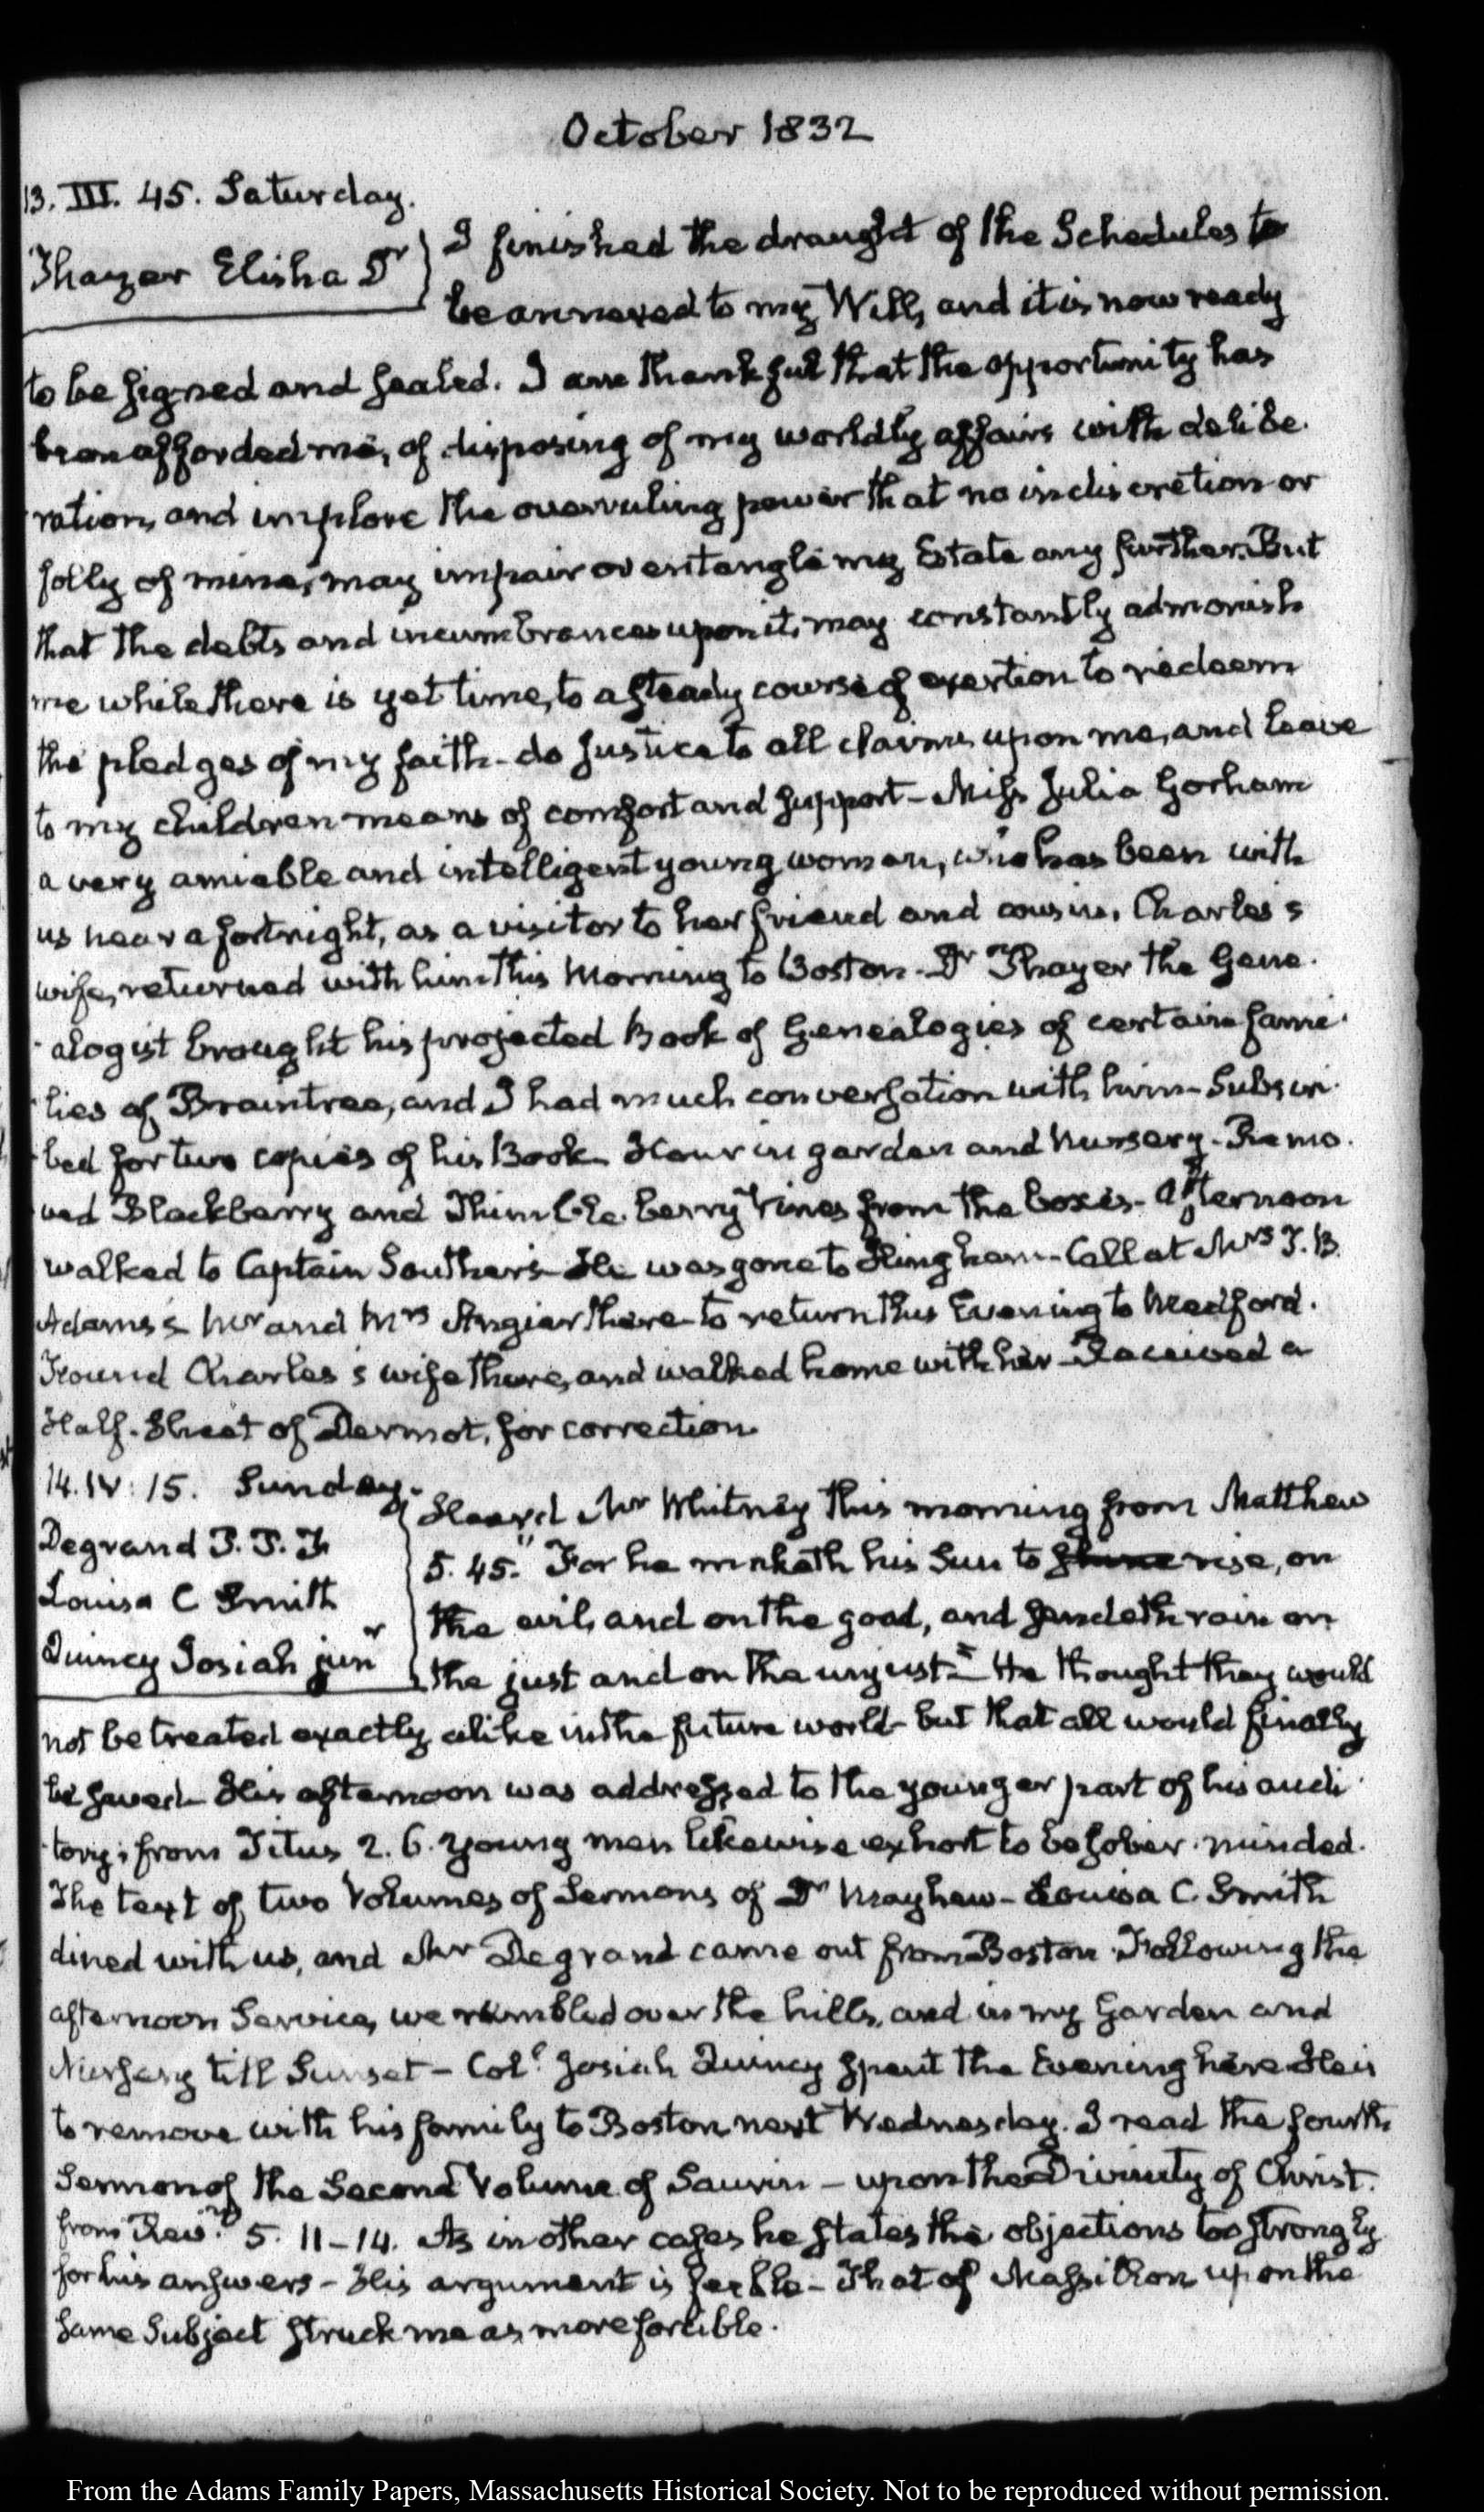 October 1832
13. III. 45. Saturday.
Thayer Elisha Dr
I finished the draught of the Schedules to
be annexed to my Will, and it is now ready
to be signed and sealed. I am thankful that the opportunity has
been afforded me, of disposing of my worldly affairs with delibe-
ration, and implore the overruling power that no indiscretion or
folly of mine, may impair or entangle my Estate any further. But
that the debts and incumbrances upon it, may constantly admonish
me while there is yet time, to a steady course of exertion to redeem
the pledges of my faith - do justice to all claims upon me, and leave
to my children means of comfort and support - Miss Julia Gorham
a very amiable and intelligent young woman, who has been with
us near a fortnight, as a visitor to her friend and cousin, Charles's
wife, returned with him this Morning to Boston - Dr Thayer the Gene-
-alogist brought his projected Book of Genealogies of certain fami-
-lies of Braintree, and I had much conversation with him - Subscri-
-bed for two copies of his Book. Hour in garden and Nursery - Remo-
-ved Blackberry and Thimble-berry Vines from the boxes - Afternoon
walked to Captain Souther's - He was gone to Hingham - Call at Mrs T. B.
Adams's Mr and Mrs Angier there - to return this Evening to Medford.
Found Charles's wife there, and walked home with her - Received a
Half-Sheet of Dermot, for correction.
14. IV: 15. Sunday.
Degrand P. P. F
Louisa C Smith
Quincy Josiah junr
Heard Mr Whitney this morning from Matthew
5. 45. "For he maketh his Sun to shine rise, on
the evil, and on the good, and sendeth rain on
the just and on the unjust" - He thought they would
not be treated exactly alike in the future world - but that all would finally
be saved - His afternoon was addressed to the younger part of his audi-
-tory; from Titus 2. 6. Young men likewise exhort to be sober-minded.
The text of two Volumes of Sermons of Dr Mayhew - Louisa C. Smith
dined with us, and Mr Degrand came out from Boston. Following the
afternoon Service, we rambled over the hills, and in my Garden and
Nursery till Sunset - Coll Josiah Quincy spent the Evening here. He is
to remove with his family to Boston next Wednesday. I read the fourth
Sermon of the Second Volume of Saurin - upon the Divinity of Christ.
from Rev. 5. 11-14. As in other cases he states the objections too strongly
for his answers - His argument is feeble - That of Massillon upon the
same Subject struck me as more forcible.
From the Adams Family Papers, Massachusetts Historical Society. Not to be reproduced without permission.